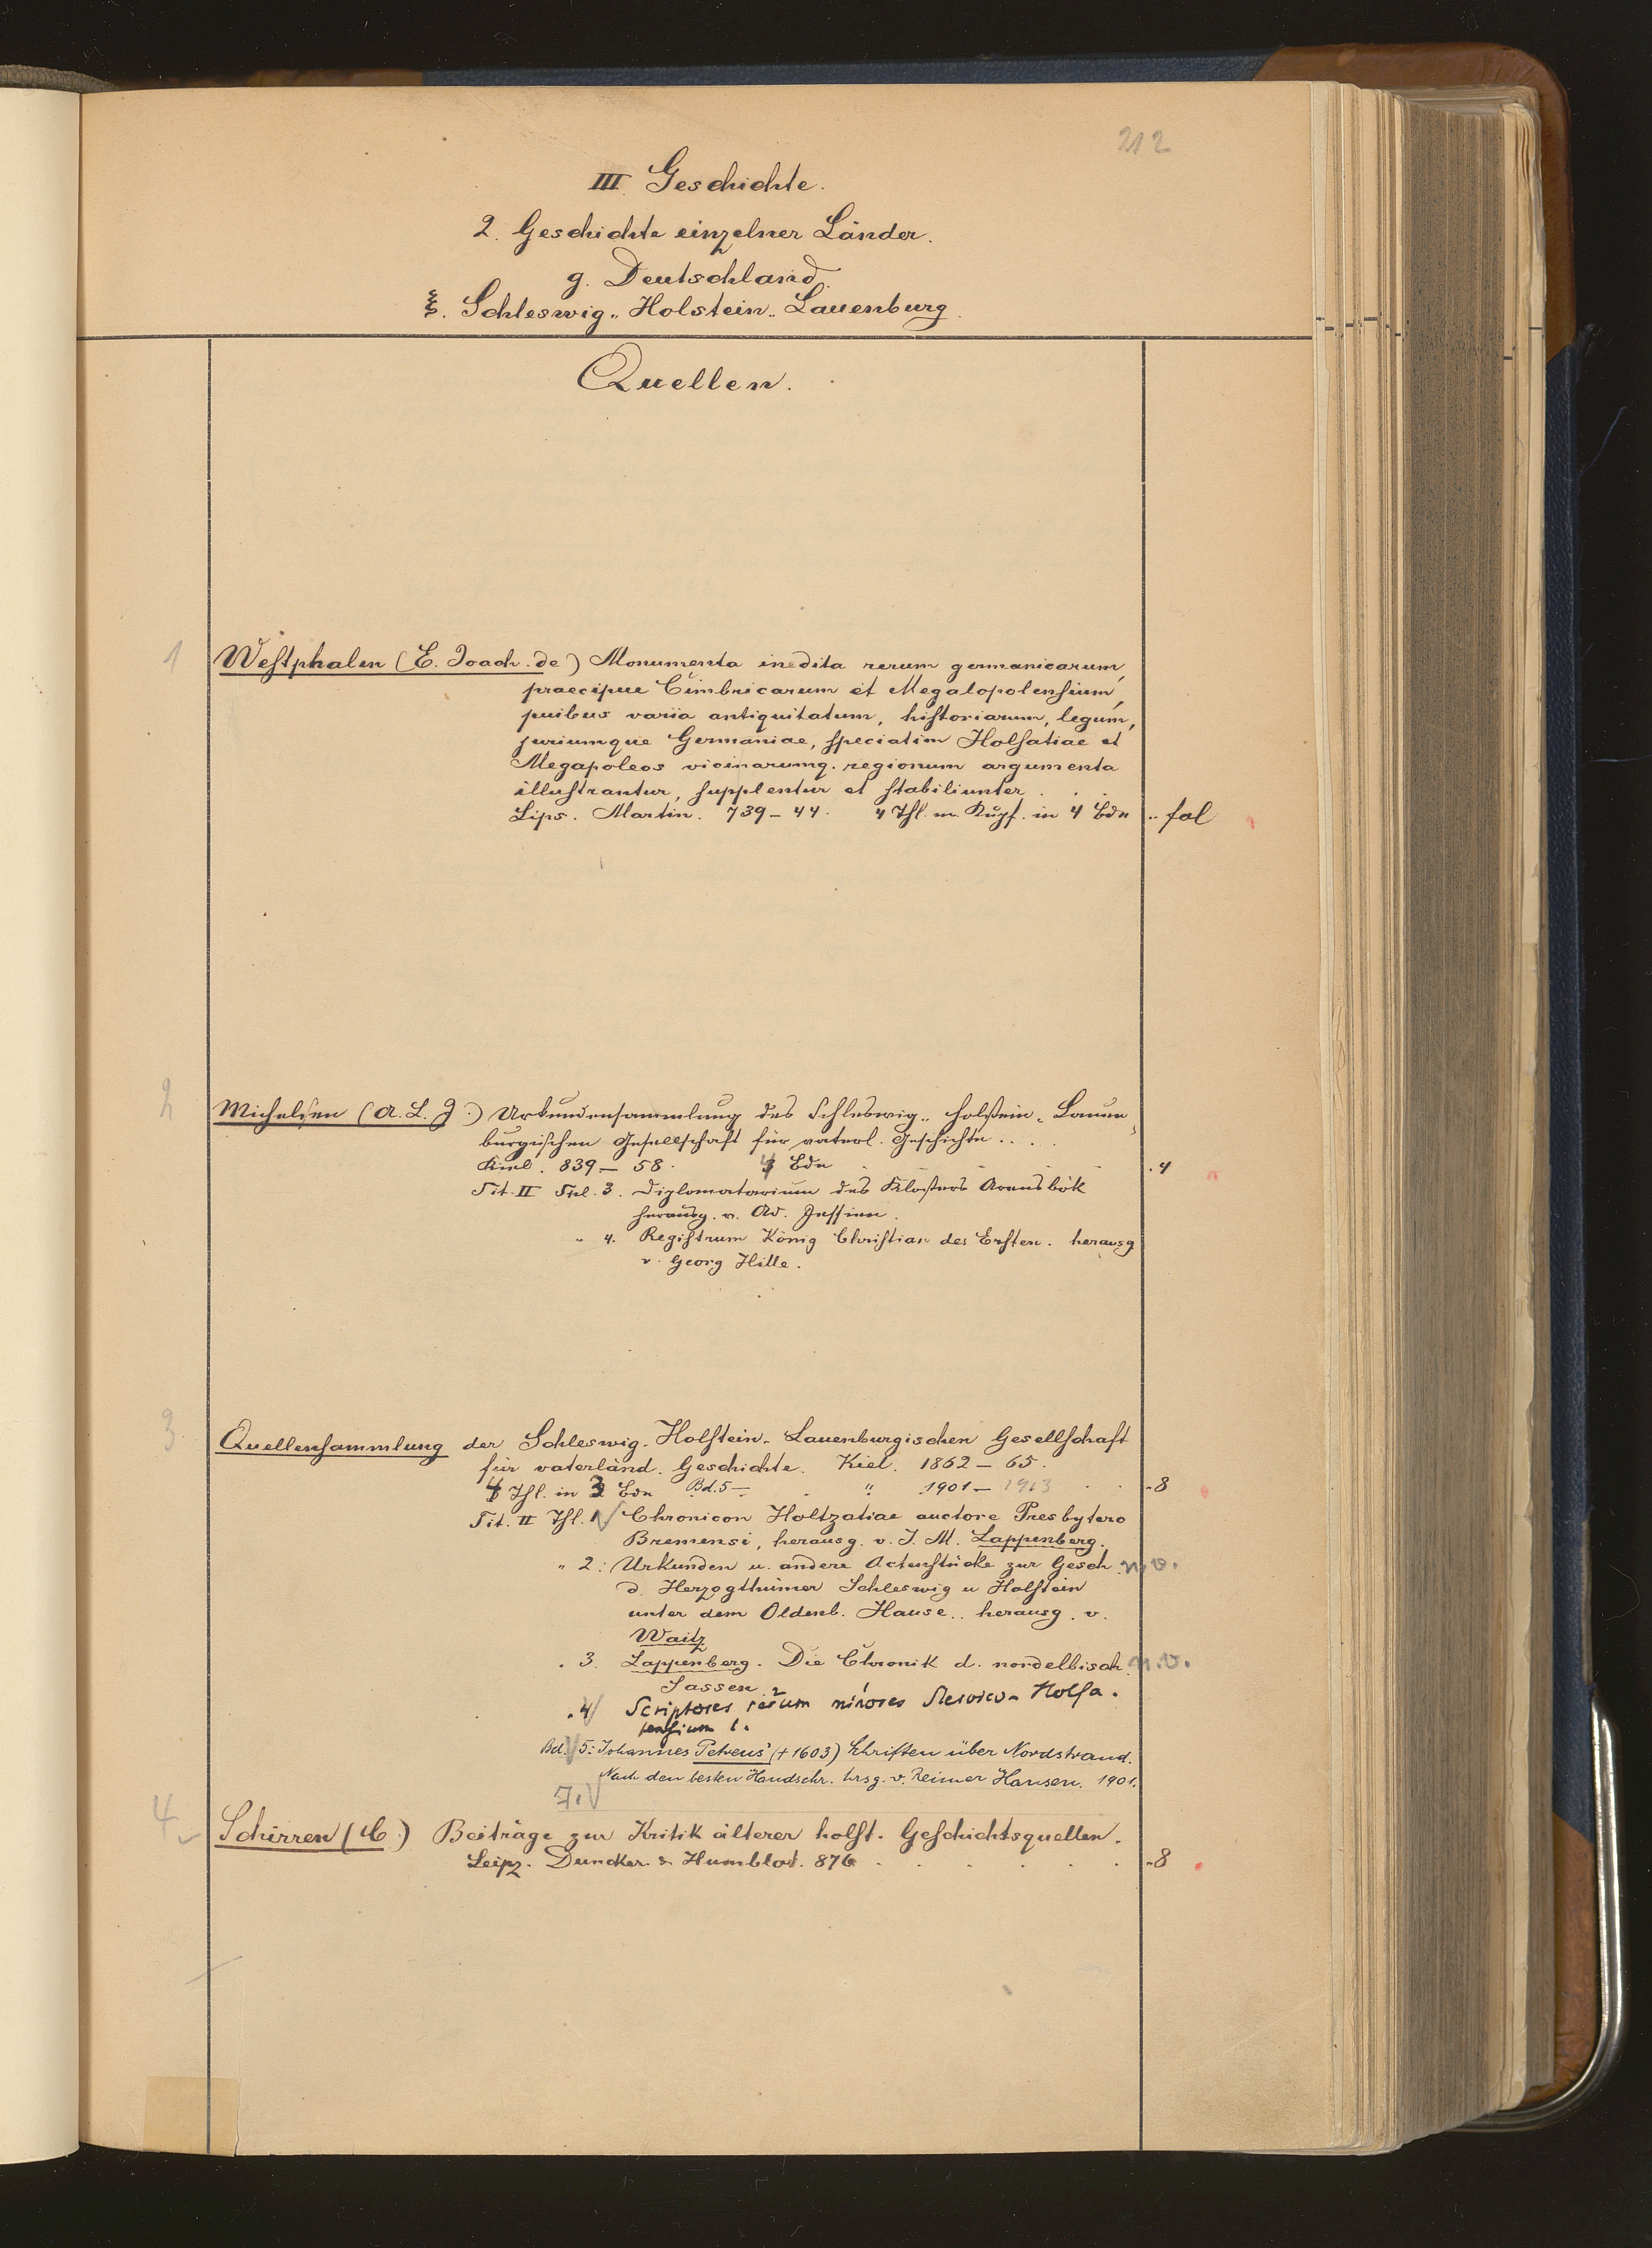 212
III Geschichte.
2. Geschichte einzelner Länder.
g. Deutschland.
ξ. Schleswig-Holstein-Lauenburg.
Quellen.
1 Westphalen (E. Joach. de) Monumenta inedita rerum germanicarum,
praecipue Cimbricarum et Megalopolensium,
quibus varia antiquitatum, historiarum, legum,
juriumque Germaniae, speciatim Holsatiae et
Megapoleos vicinarumq. regionum argumenta
illustrantur, supplentur et stabiliunter . . .
Lips. Martin. 739-44. 4 Thl. m. Kupf. in 4 Bdn .. fol
2 Michelsen (A. L. J.) Urkundensammlung des Schleswig-Holstein-Lauen-
burgischen Gesellschaft für vaterl. Geschichte . . . .
Kiel. 839-58. 4 Bdn . . . . 4
Tit. II Thl. 3. Diplomatarium des Klosters Arensbök
herausg. v. Ad. Jessien.
" 4. Registrum König Christian des Ersten. herausg
v. Georg Hille.
3. Quellensammlung der Schleswig-Holstein-Lauenburgischen Gesellschaft
für vaterländ. Geschichte. Kiel. 1862-65.
4 Thl. in 3 Bdn Bd. 5- " 1901-1913 . . - 8
Tit. II Thl. 1 Chronicon Holtzatiae auctore Presbytero
Bremensi, herausg. v. J. M. Lappenberg.
" 2: Urkunden u. andere Actenstücke zur Gesch. n. v.
d. Herzogthümer Schleswig u Holstein
unter dem Oldenb. Hause.. herausg. v.
Waitz
. 3. Lappenberg. Die Chronik d. nordelbisch. n. v.
Sassen
. 4 Scriptores rerum minores Slesvico-Holsa-
tensium 1.
Bd. 5: Johannes Petreus' (+1603) Schriften über Nordstrand.
Nach den besten Handschr. hrsg. v. Reimer Hansen. 1901.
7.
4 Schirren (C.) Beiträge zur Kritik älterer holst. Geschichtsquellen.
Leipz. Duncker & Humblot. 876 . . . . . . - 8